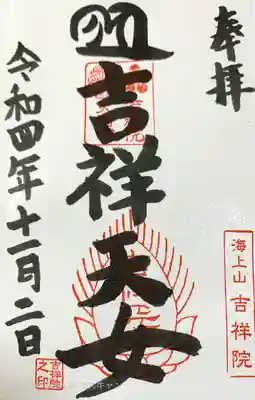 奉拝
海上山 吉祥院
吉祥天女
令和四年十一月二日
吉祥院之印